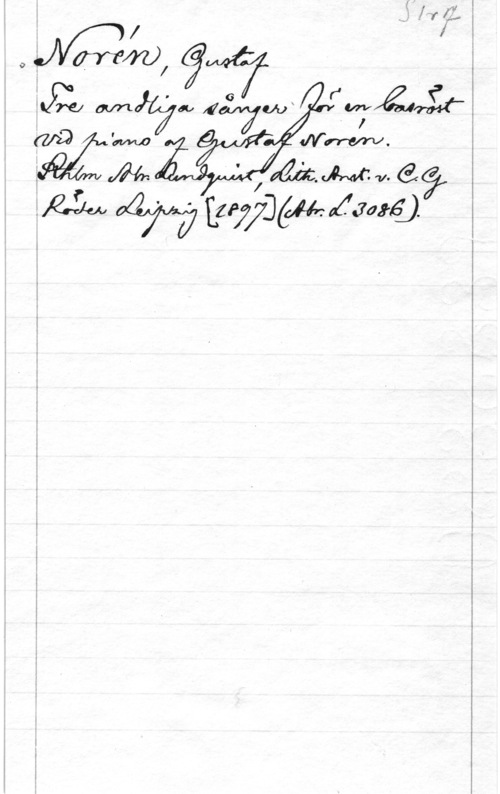 Norén, Gustaf
Tre andliga sånger för en basröst
vid piano af Gustaf Norén.
Sthlm Abr. Lundquist, Lith. Anst. v. C. G.
Röder Leipzig [1897] (Abr. L. 3086).